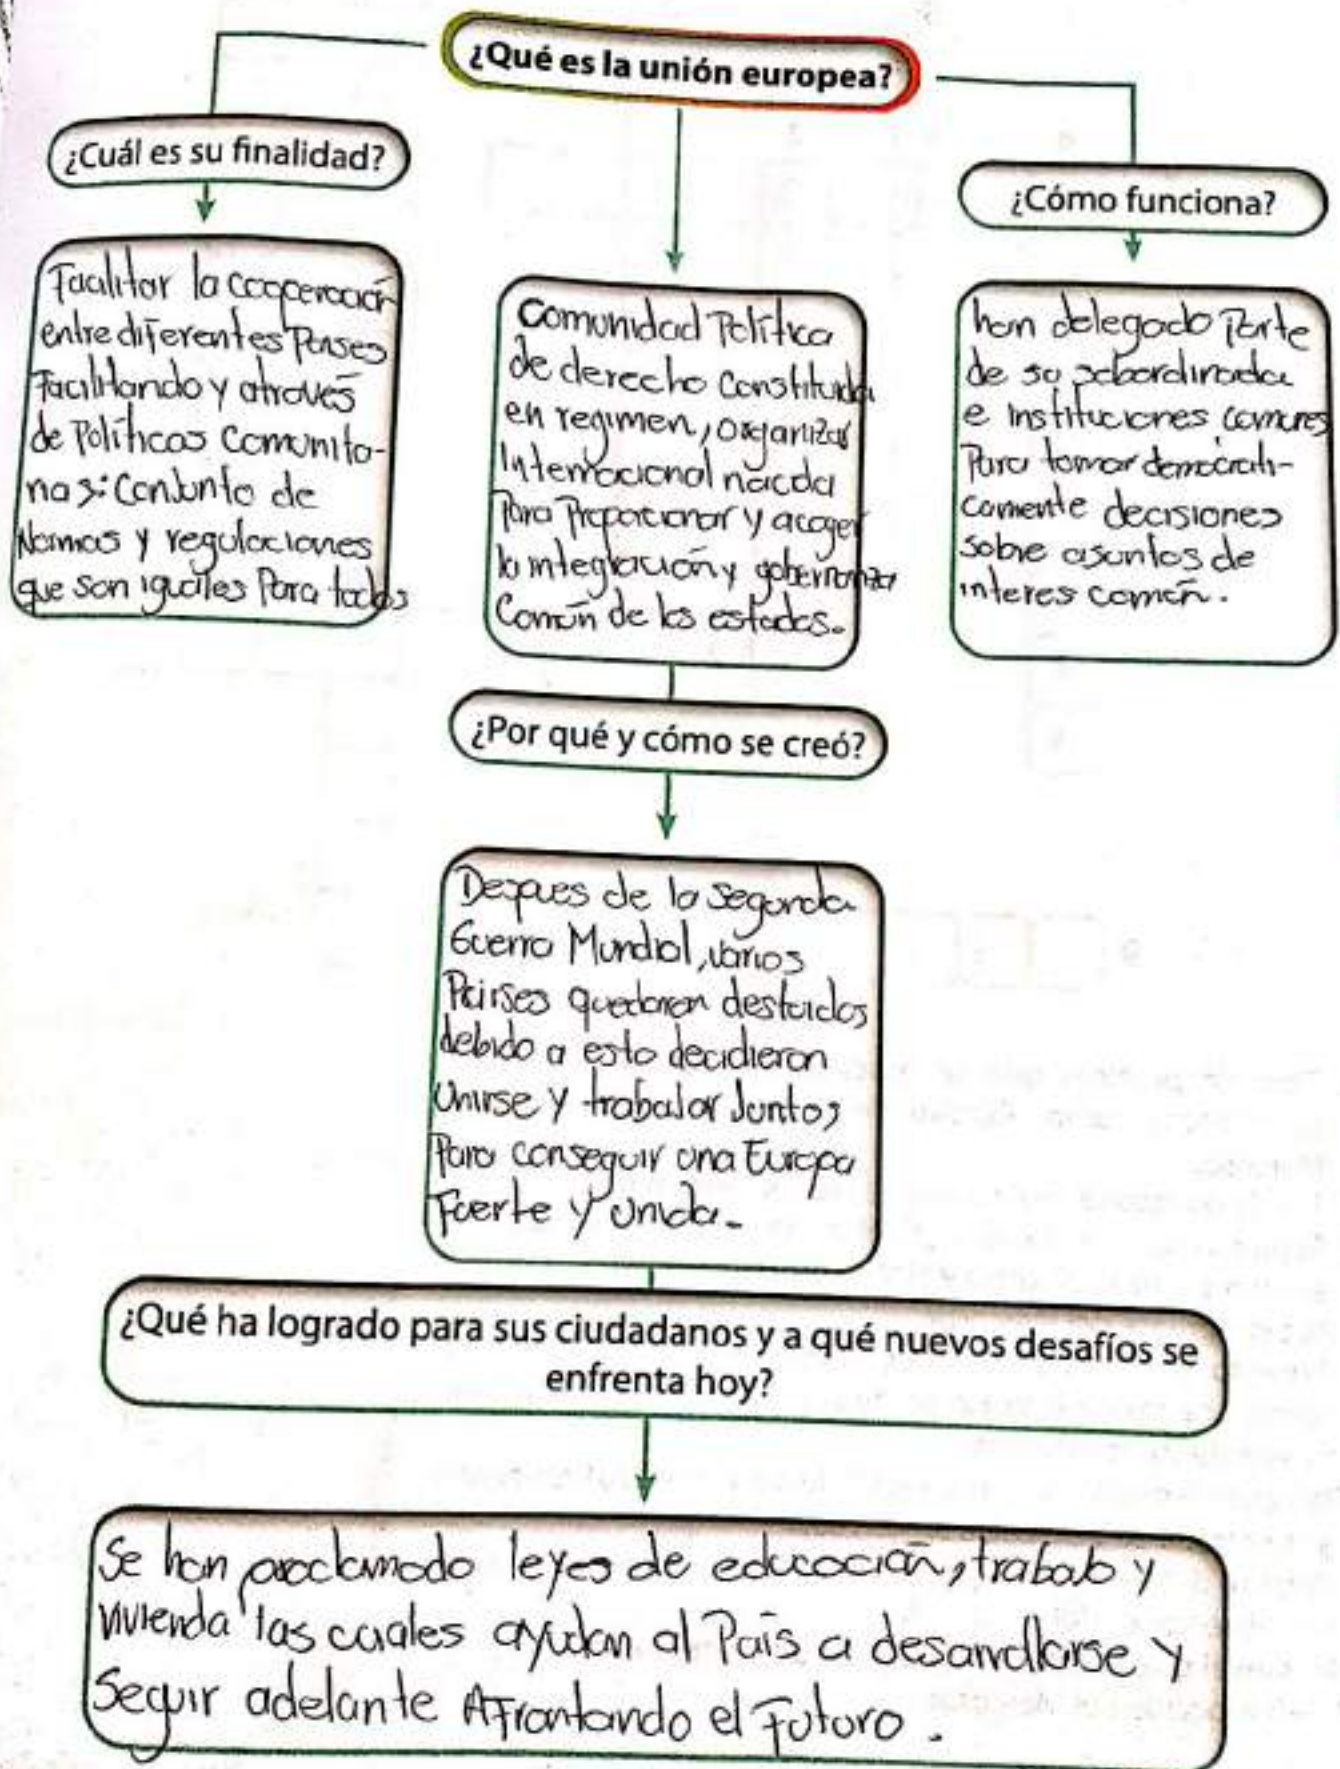 ¿Qué es la unión europea?
¿Cuál es su finalidad?
Facilitar la cooperación
entre diferentes Paises
Facilitando y através
de Políticas Comunita-
rias: Conjunto de
Normas y regulaciones
que son iguales Para todos
Comunidad Política
de derecho Constituida
en regimen, organizar
Internacional nacida
Para Proporcionar y acoger
la integración y gobernanza
Común de los estados.
¿Cómo funciona?
han delegado Parte
de su
e instituciones comunes
Para tomar democrati-
camente decisiones
sobre asuntos de
interes común.
¿Por qué y cómo se creó?
Despues de la segunda
Guerra Mundial, varios
Paises quedaron destuidos
debido a esto decidieron
Unirse y trabajar Juntos
Para conseguir una Europa
Fuerte y Unida.
¿Qué ha logrado para sus ciudadanos y a qué nuevos desafíos se
enfrenta hoy?
Se han proclamado leyes de educación, trabajo y
vivienda las cuales ayudan al País a desarrollarse y
Seguir adelante Afrontando el Futuro.